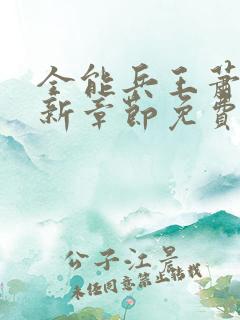 全能兵王萧
新章节免费
公子江景
未经同意禁止转载